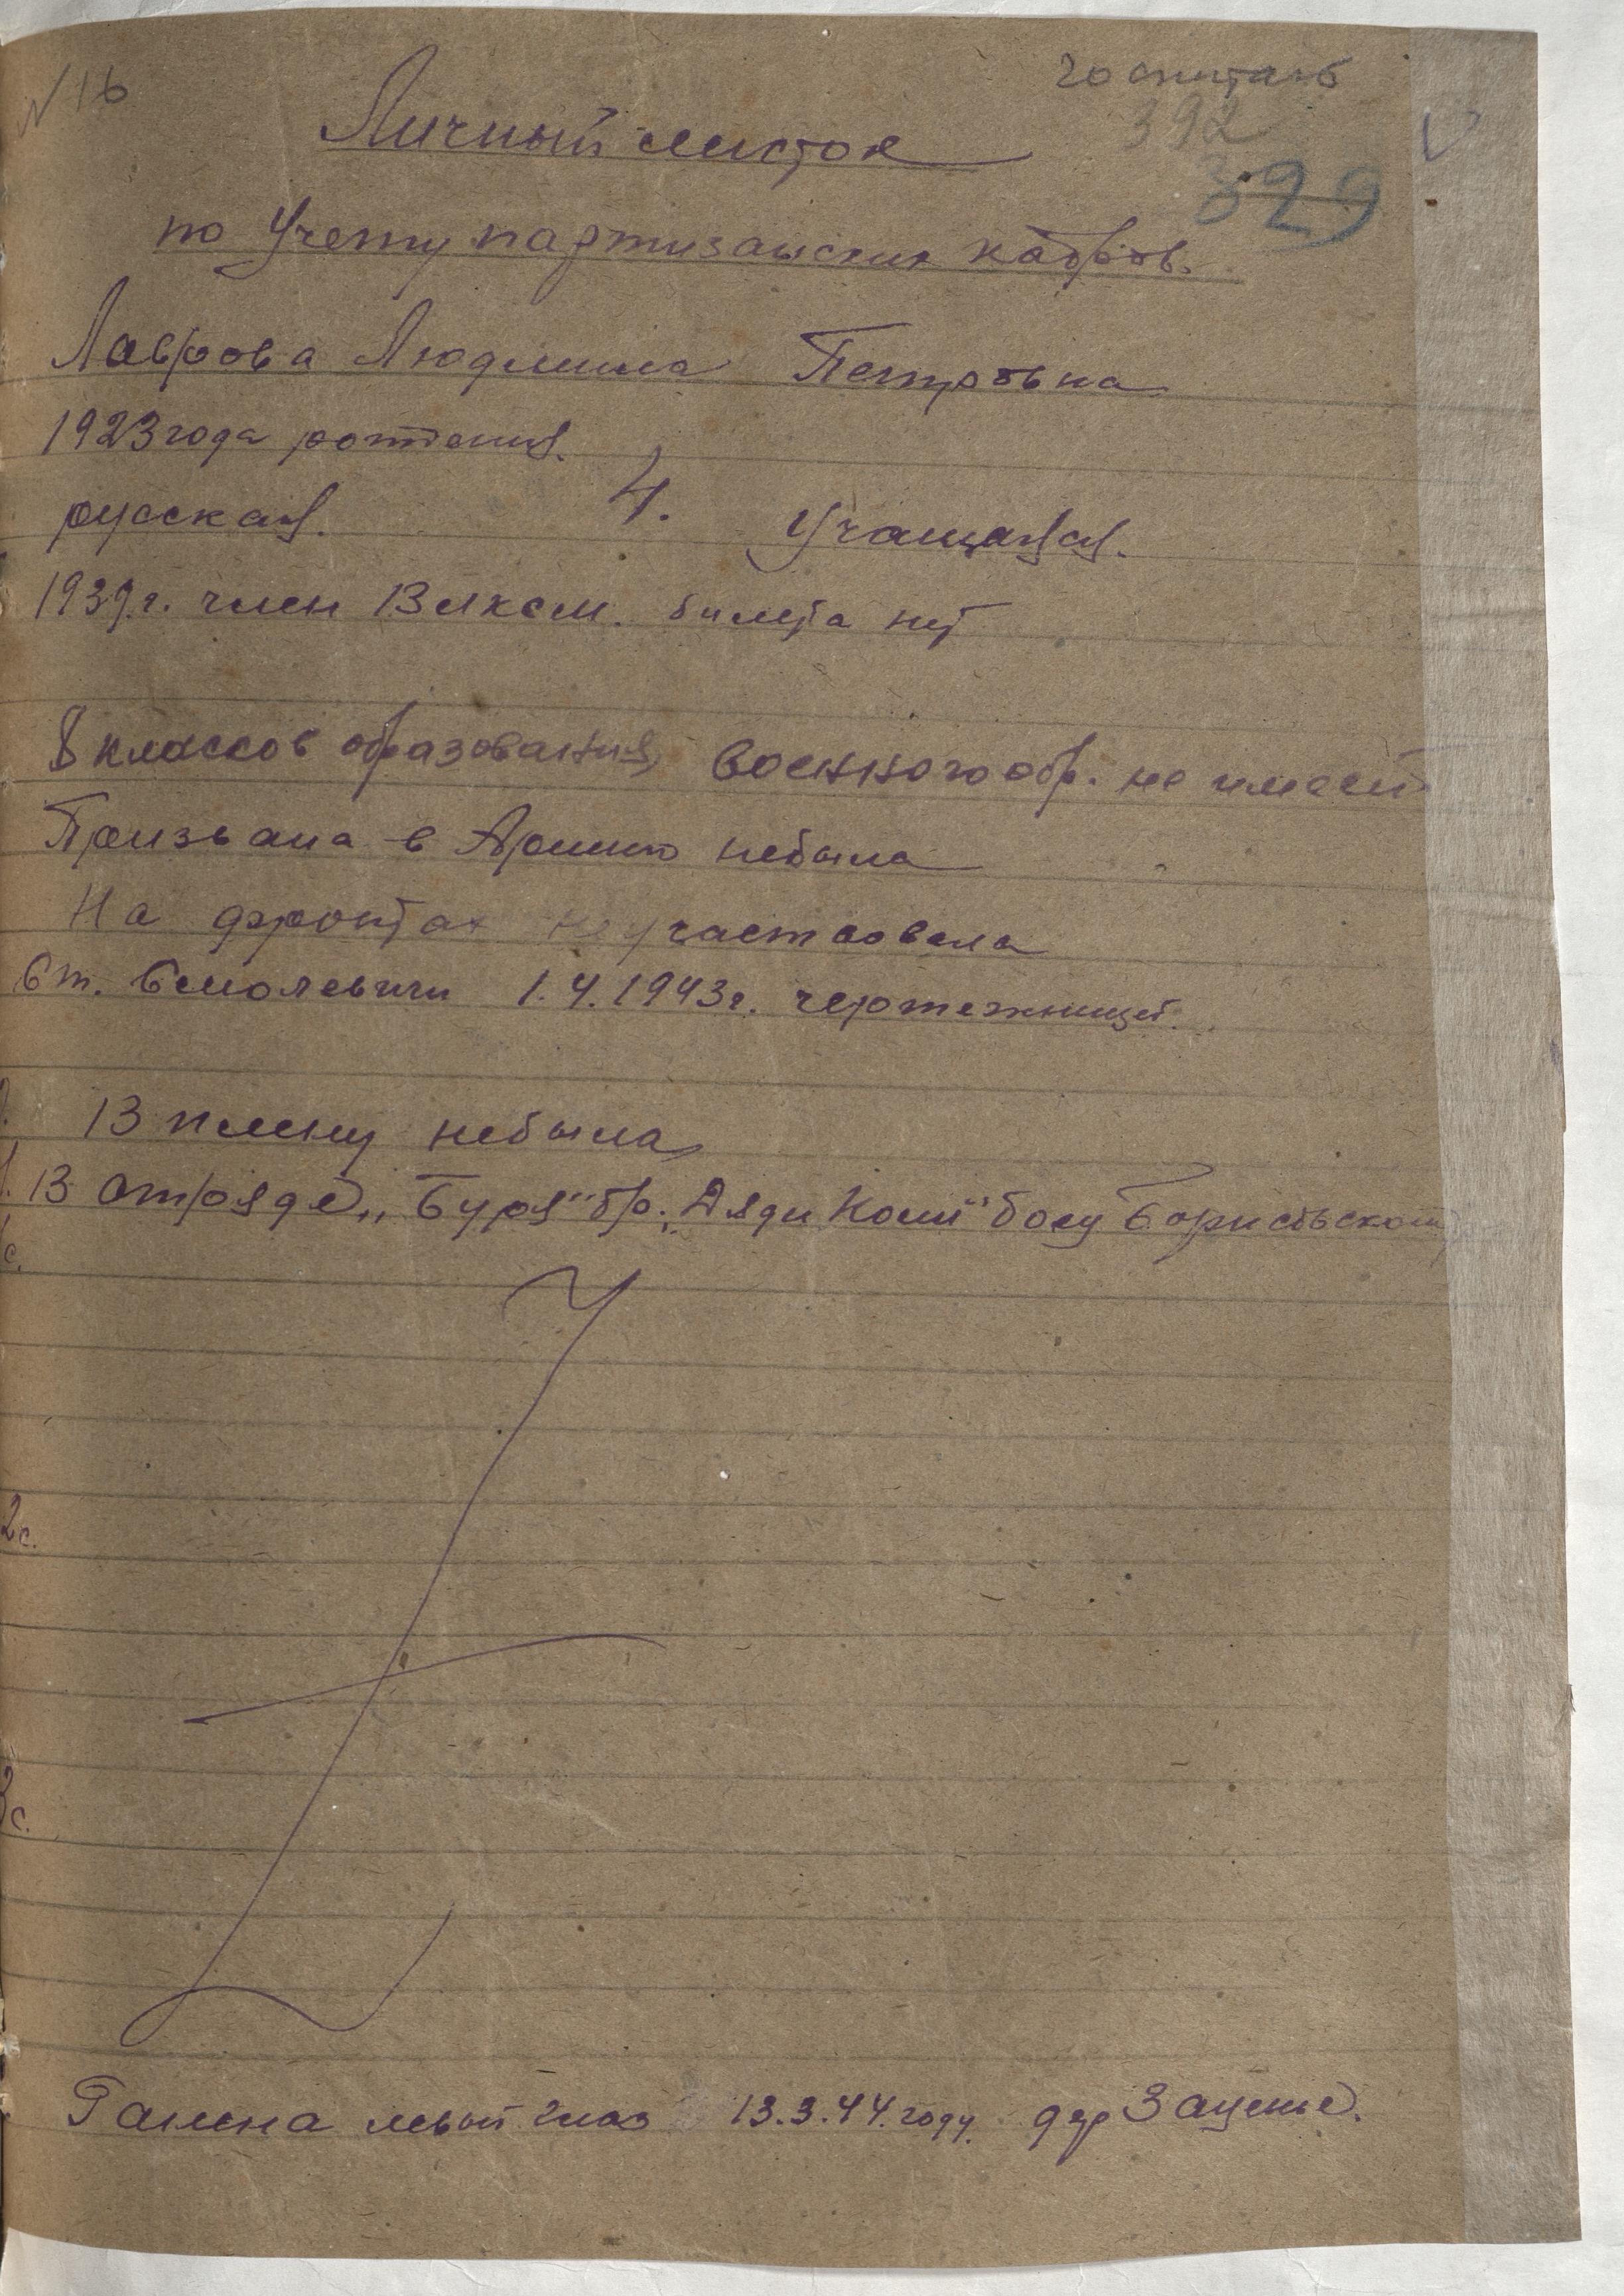 N 16
госпиталь
392
329
Личный листок
по Учету партизанских кадров.
Лаврова Людмила Петровна
1923 года рождения.
русская. 4. Учащаяся.
1939 г. член Влксм. билета нет
8 классов образования, военного обр. не имеет
Призвана в Армию небыла
На фронтах неучаствовала
Ст. Смолевичи 1.4.1943 г. чертежницей.
В плену небыла
В Отряде „Буря" бр. „Дяди Коли"
2 с.
3 с.
Ранена левый глаз 13.3.44. году. дер Заценье.